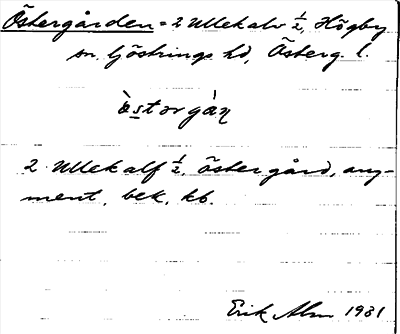 Östergården = 2 Ullekalv ½, Högby
sn. Göstrings hd, Österg. l.
östərgàɳ
2 Ullekalf ½, östergård, any-
ment, bek. kb.
Erik Alm 1931